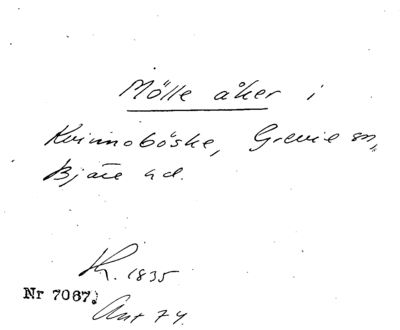 Mölle åker i
Kvinnoböske, Grevie sn,
Bjäre hd.
K. 1835
Nr 7067.
Ant 74.